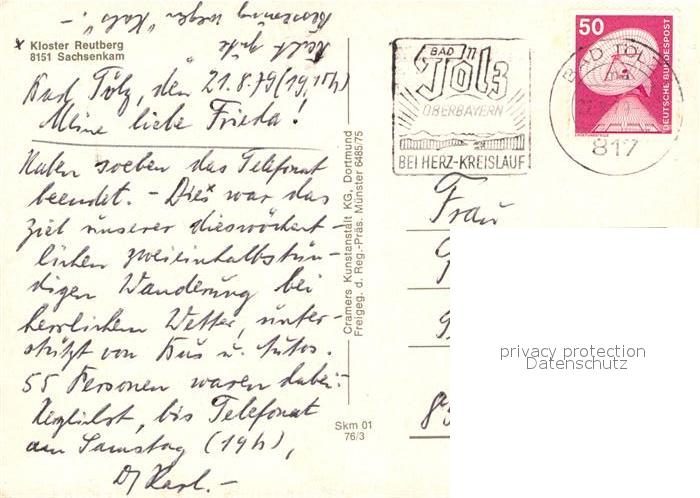 x Kloster Reutberg
8151 Sachsenkam
Bad Tölz, den 21.8.79 (19,15h)
Meine liebe Frieda!
Haben soeben das Telefonat
beendet. - Dies x war das
Ziel unserer dieswöchent-
lichen zweieinhalbstün-
digen Wanderung bei
herrlichem Wetter, unter-
stützt von Bus u. Autos.
55 Personen waren dabei.-
Herzlichst, bis Telefonat
am Samstag (19h),
Dj Karl.-
Recht gute
Besserung wegen "Kals"!
Cramers Kunstanstalt KG, Dortmund
Freigeg. d. Reg.-Präs. Münster 6485/75
Skm 01
76/3
BAD
Tölz
OBERBAYERN
BEI HERZ-KREISLAUF
BAD TÖLZ
817
50
DEUTSCHE BUNDESPOST
Frau
8
privacy protection
Datenschutz